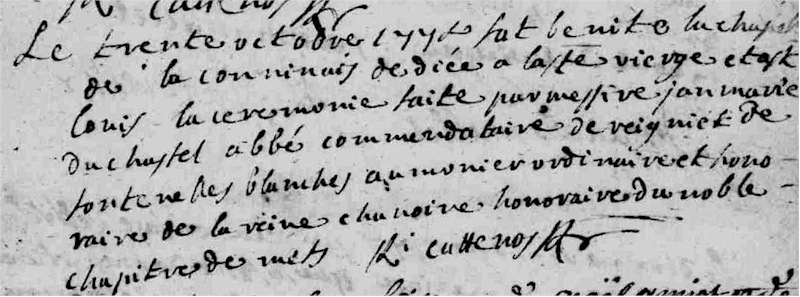 Le trente octobre 1774 fut benite la chapel
de la conninais dediée a la ste vierge et a st
louis la ceremonie faite par messire jan marie
du chastel abbé commendataire de reigniet de
fontenelles blanches aumonier ordinaire et hono-
raire de la reine chanoine honoraire du noble
chapitre de mets